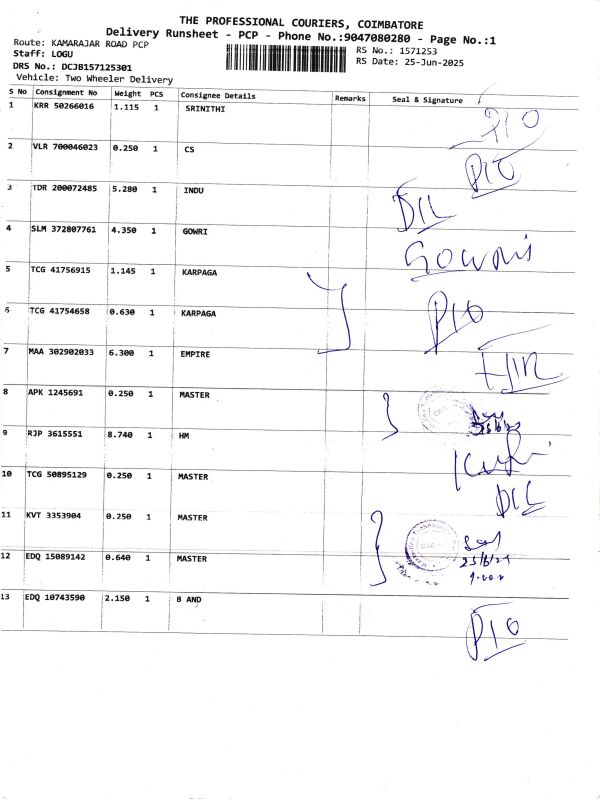 THE PROFESSIONAL COURIERS, COIMBATORE
Delivery Runsheet - PCP - Phone No.:9047080280 - Page No.:1
Route: KAMARAJAR ROAD PCP
Staff: LOGU
DRS No.: DCJB157125301
Vehicle: Two Wheeler Delivery
RS No.: 1571253
RS Date: 25-Jun-2025
S No Consignment No Weight PCS Consignee Details Remarks Seal & Signature
1 KRR 50266016 1.115 1 SRINITHI P10
2 VLR 700046023 0.250 1 CS P10
3 TDR 200072485 5.280 1 INDU DIL
4 SLM 372807761 4.350 1 GOWRI Gowri
5 TCG 41756915 1.145 1 KARPAGA
6 TCG 41754658 0.630 1 KARPAGA P10
7 MAA 302902033 6.300 1 EMPIRE
8 APK 1245691 0.250 1 MASTER
9 RJP 3615551 8.740 1 HM
10 TCG 50895129 0.250 1 MASTER DIL
11 KVT 3353904 0.250 1 MASTER
12 EDQ 15089142 0.640 1 MASTER
13 EDQ 10743590 2.150 1 B AND P10